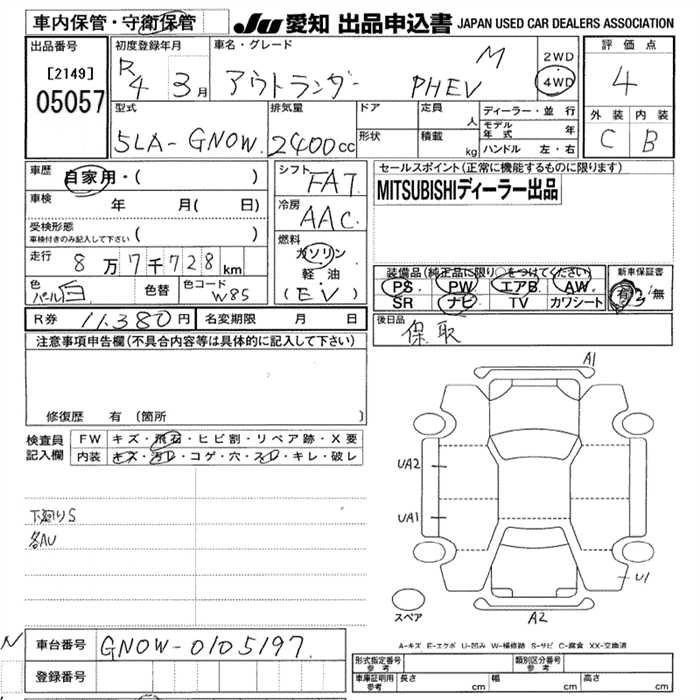 車内保管・守衛保管 JU 愛知 出品申込書 JAPAN USED CAR DEALERS ASSOCIATION
出品番号 [2149] 05057
初度登録年月 R4 3月
車名・グレード アウトランダー PHEV M
2WD 4WD
評価点 4
型式 5LA-GN0W.
排気量 2400cc
ドア 形状
定員 人
積載 kg
ディーラー・並行
モデル年式 年
ハンドル 左・右
外装 内装
C B
車歴 自家用・( )
車検 年 月( 日)
受検形態 車検付きのみ記入して下さい ( )
走行 8万7千728km
色 パール白 色替 色コード W85
シフト FA7.
冷房 AAC.
燃料 ガソリン 軽油 (EV)
セールスポイント(正常に機能するものに限ります)
MITSUBISHIディーラー出品
装備品(純正品に限り○をつけてください)
PS PW エアB AW
SR ナビ TV カワシート
新車保証書 有・無
R券 11,380円 名変期限 月 日
後日品 保取
注意事項申告欄(不具合内容等は具体的に記入して下さい)
修復歴 有 (箇所 )
検査員記入欄
FW キズ・飛石・ヒビ割・リペア跡・X要
内装 キズ・汚レ・コゲ・穴・スレ・キレ・破レ
下廻りS
各AU
A1
UA2
UA1
U1
A2
スペア
A-キズ E-エクボ U-凹み W-補修跡 S-サビ C-腐食 XX-交換済
N 車台番号 GN0W-0105197.
登録番号
形式指定番号 参考 類別区分番号 参考
車庫証明用 参考 長さ cm 幅 cm 高さ cm